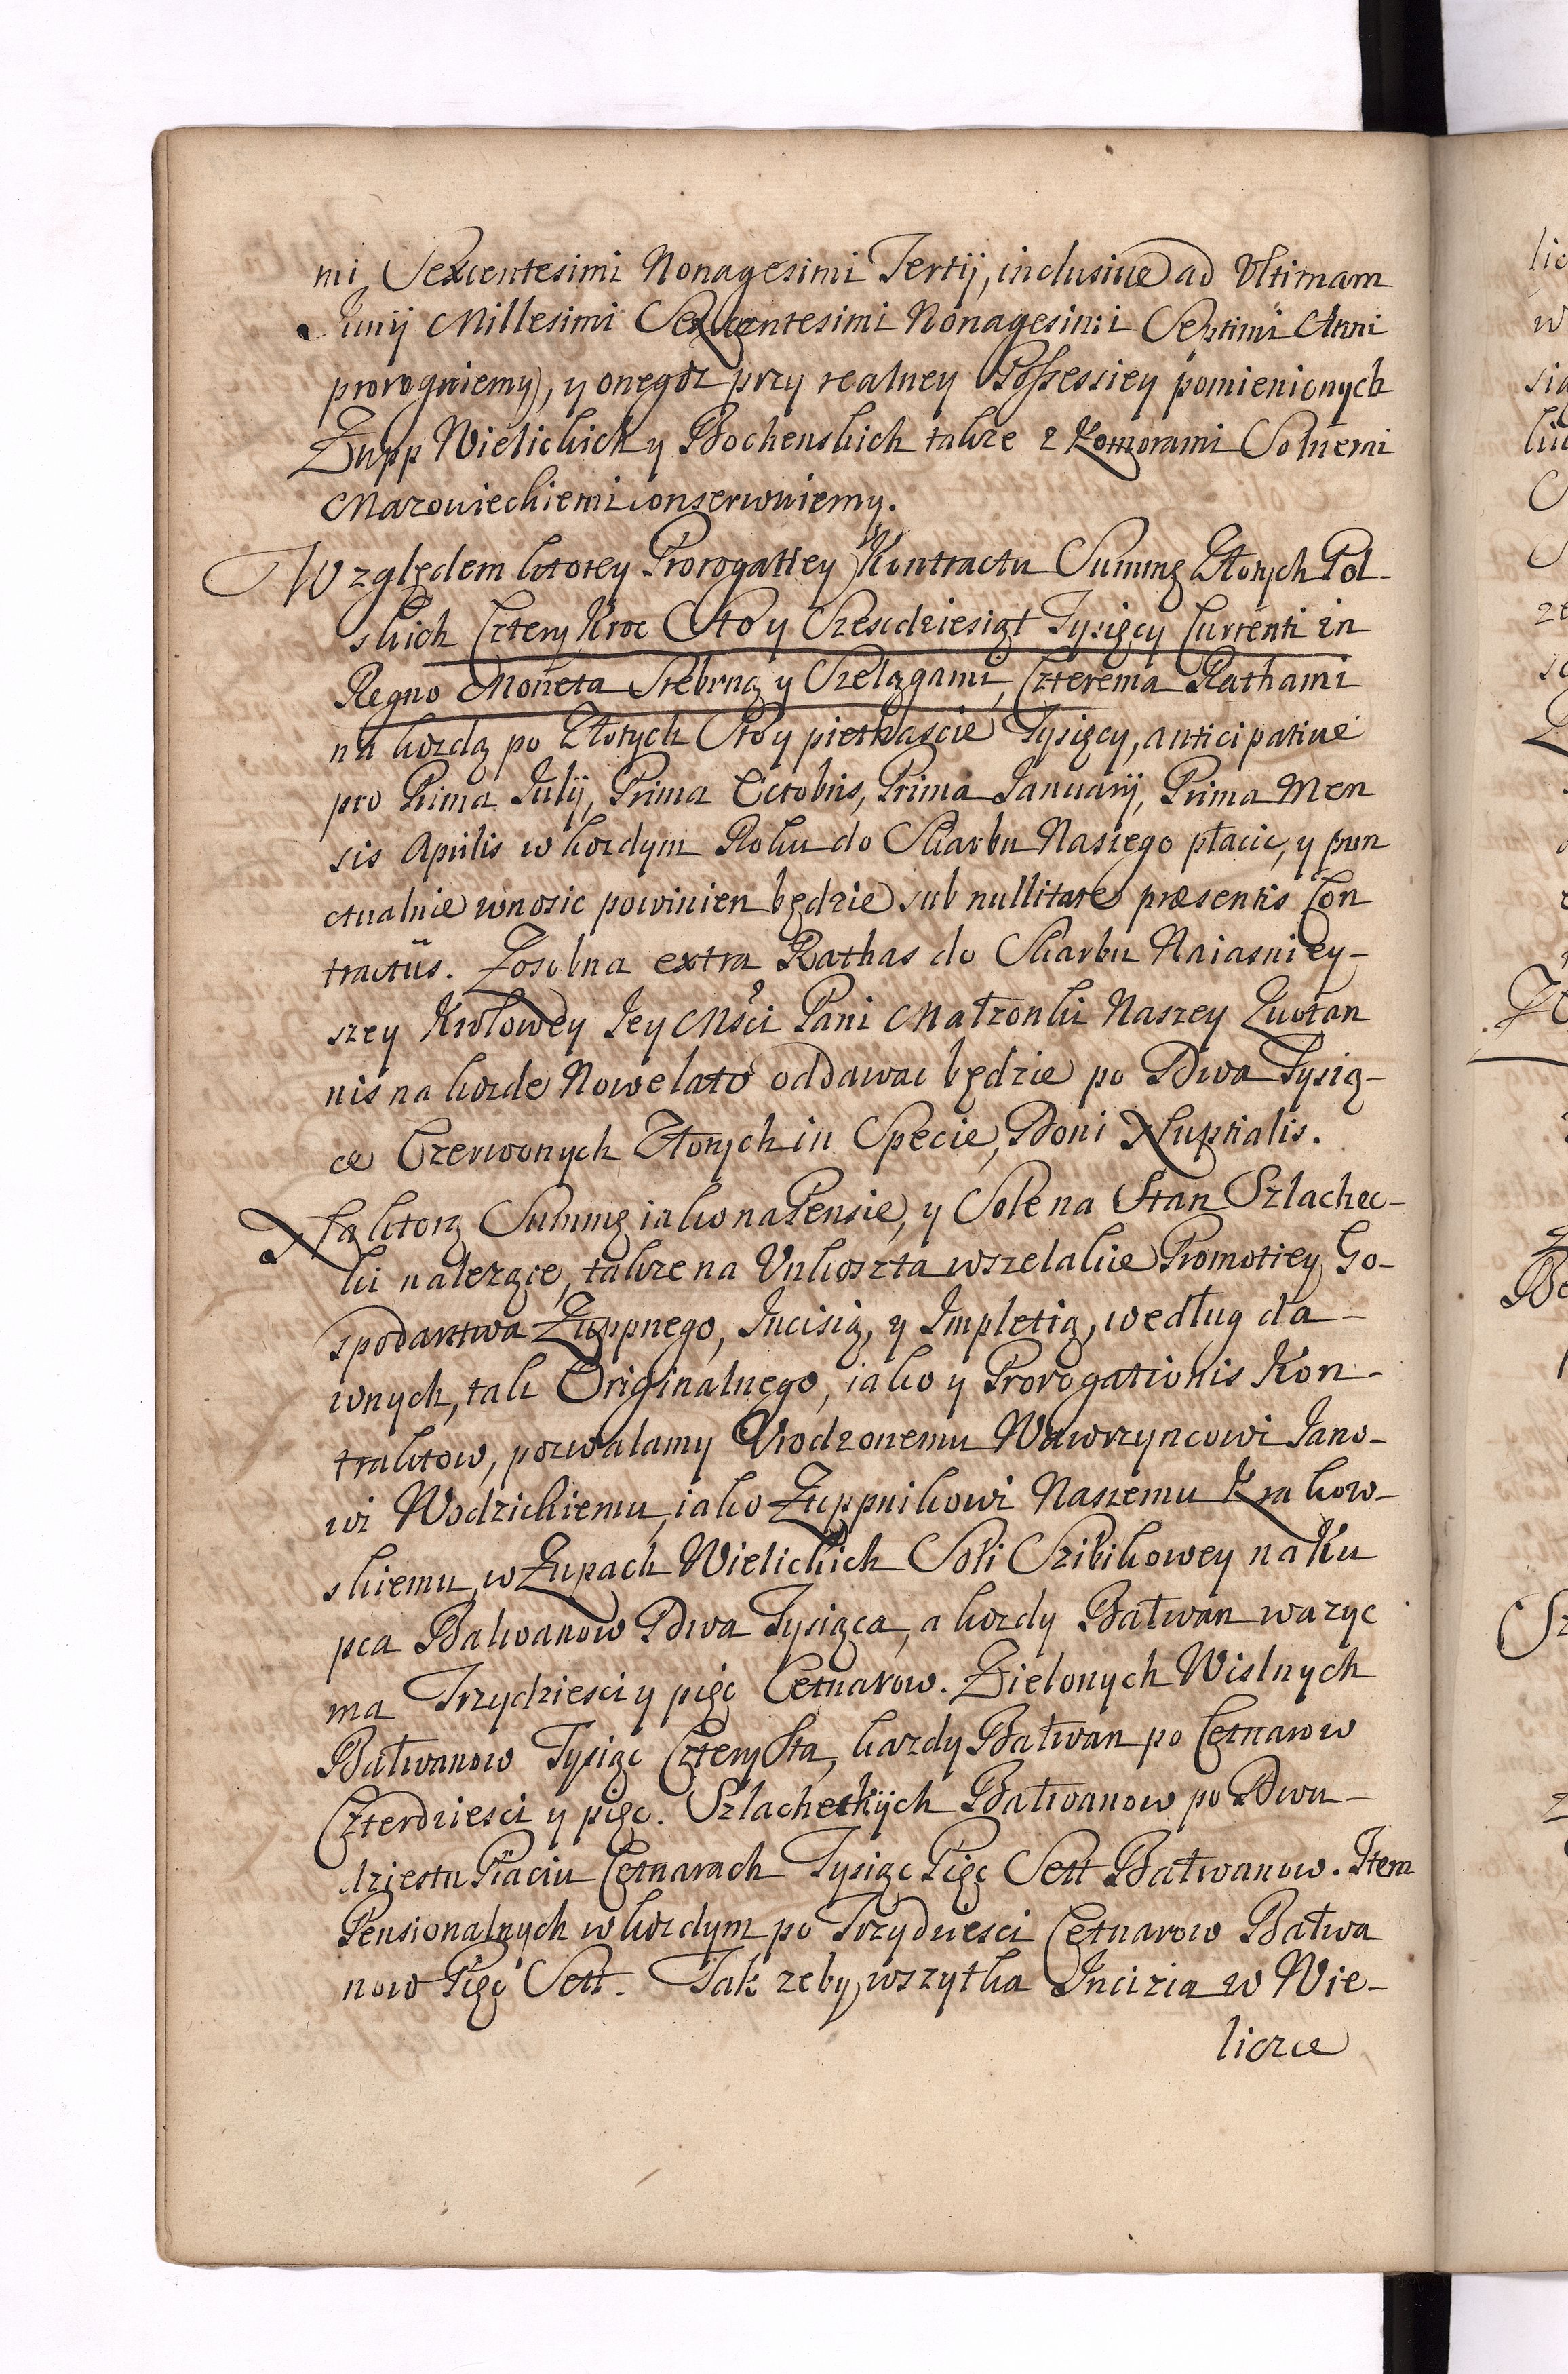 mi Sexcentesimi Nonagesimi Tertij, inclusive ad Vltimam
Junij Millesimi Sexcentesimi Nonagesimi Septimi Anni
proroguiemy, y onegoz przy realney Possessiey pomienionych
Zupp Wielickich y Bochenskich takze z Komorami Solnemi
Mazowieckiemi conserwuiemy.
Względem ktorey Prorogatiey Kontractu Summę Złotych Pol-
skich Cztery Kroc Sto y Szescdziesiąt Tysięcy Currenti in
Regno Moneta Srebrną y Szelągami, Czterema Rathami
na kozdą po Złotych Sto y pietnascie Tysięcy, anticipative
pro Prima Julij, Prima Octobris, Prima Januarij, Prima Men
sis Aprilis w kozdym Roku do Skarbu Naszego płacic, y pun
ctualnie wnosic powinien będzie sub nullitate præsentis Con
tractus. Zosobna extra Rathas do Skarbu Naiasniey-
szey Krolowey Jey Mści Pani Małzonki Naszey
nis na kozde Nowe lato oddawac będzie po Dwa Tysią-
ce Czerwonych Złotych in Specie, Doni Nuptialis.
Na ktorą Summę iako na Pensie, y Sole na Stan Szlachec-
ki nalezące, takze na Vnkoszta wszelakie Promotiey Go-
spodarstwa Zuppnego, Incisią, y Impletią, według da-
wnych, tak Originalnego, iako y Prorogationis Kon-
traktow, pozwalamy Vrodzonemu Wawrzyncowi Jano-
wi Wodzickiemu, iako Zuppnikowi Naszemu Krakow-
skiemu, w Zupach Wielickich Soli Szibikowey na Ku
pca Bałwanow Dwa Tysiąca, a kozdy Bałwan wazyc
ma Trzydziesci y pięc Cetnarow. Zielonych Wislnych
Bałwanow Tysiąc Cztery Sta, kazdy Bałwan po Cetnarow
Czterdziesci y pięc. Szlacheckijch Bałwanow po Dwu-
dziestu Piąciu Cetnarach Tysiąc Pięc Sett Bałwanow. Item
Pensionalnych w kozdym po Trzydziesci Cetnarow Bałwa
now Pięc Sett. Tak zeby wszytka Incizia w Wie-
liczce